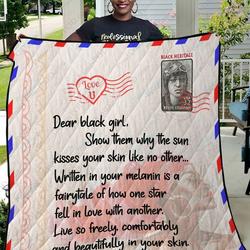 Professional
BLACK HERITAGE
Love
U
Dear black girl,
Show them why the sun
kisses your skin like no other...
Written in your melanin is a
fairytale of how one star
fell in love with another.
Live so freely, comfortably
and beautifully in your skin.